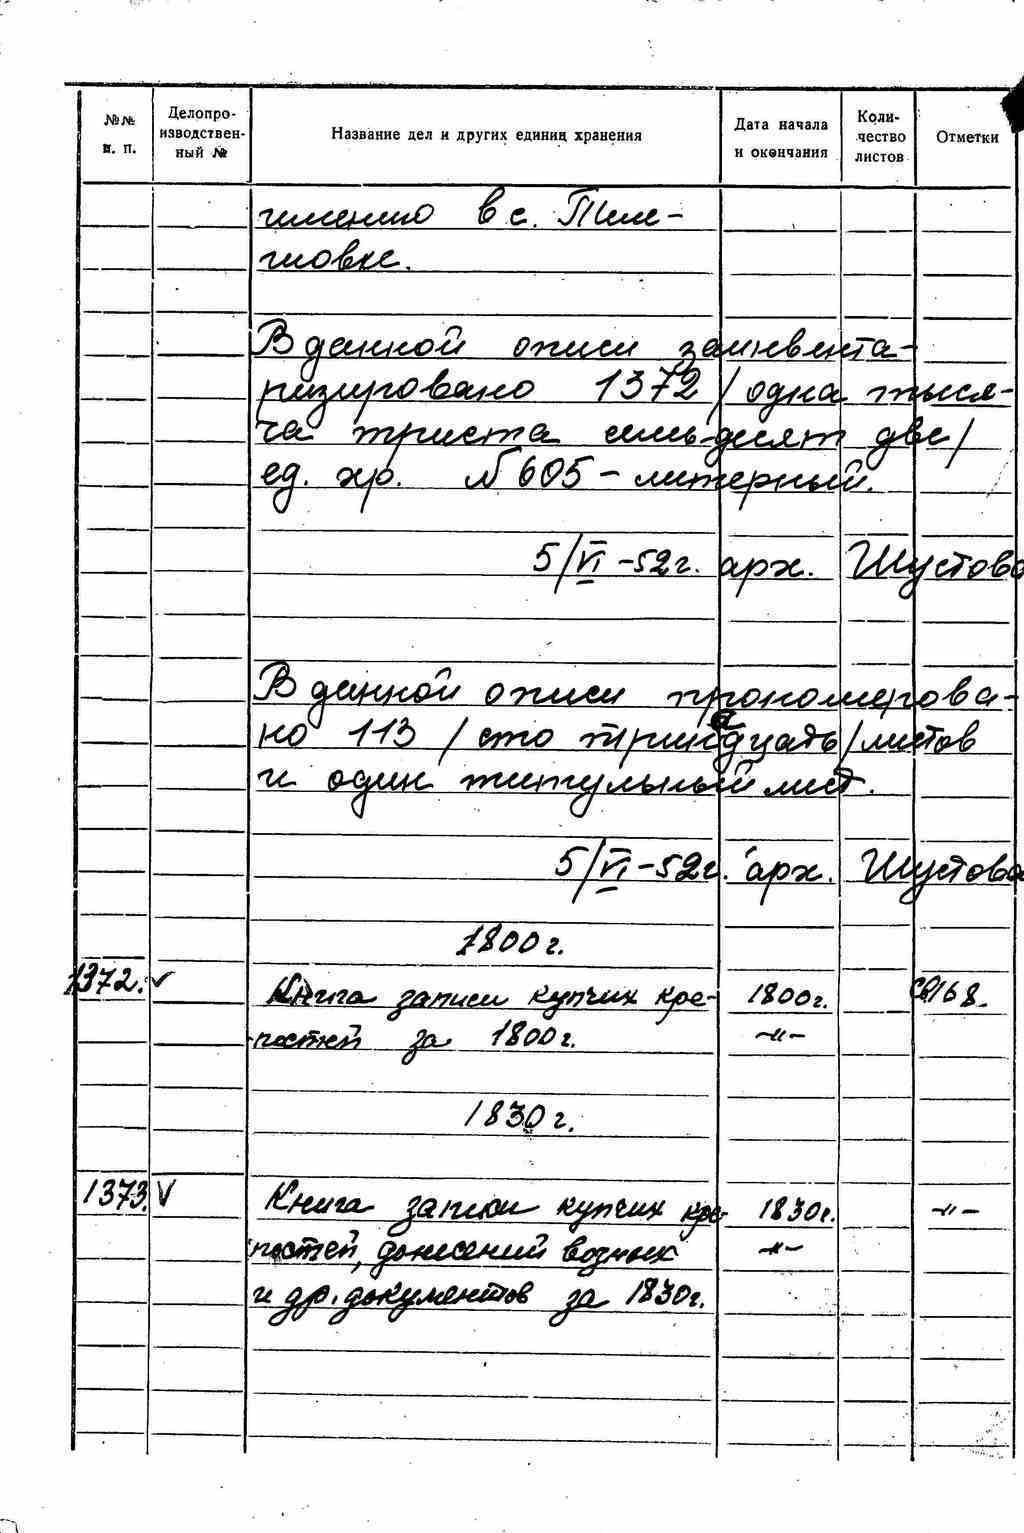 №№ п. п.
Делопро-изводствен-ный №
Название дел и других единиц хранения
Дата начала и окончания
Коли-чество листов
Отметки
имению в с. Тиме-
шовке.
В данной описи заинвента-
ризировано 1372 /одна тыся-
ча триста семьдесят две/
ед. хр. № 605 - литерный.
5/VI-52г. арх. Шустова
В данной описи прономерова-
но 113 /сто тринадцать/ листов
и один титульный лист.
5/VI-52г. арх. Шустова
1800г.
1372. V Книга записи купчих кре- 1800г. св168.
постей за 1800г. -"-
1830г.
1373. V Книга записи купчих кре- 1830г. -"-
постей, донесений возных -"-
и др. документов за 1830г.